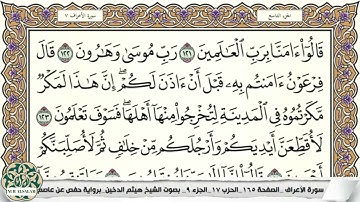 الجزء التاسع
سورة الأعراف ٧
قَالُوٓاْ ءَامَنَّا بِرَبِّ ٱلۡعَٰلَمِينَ ١٢١ رَبِّ مُوسَىٰ وَهَٰرُونَ ١٢٢ قَالَ
فِرۡعَوۡنُ ءَامَنتُم بِهِۦ قَبۡلَ أَنۡ ءَاذَنَ لَكُمۡۖ إِنَّ هَٰذَا لَمَكۡرٞ
مَّكَرۡتُمُوهُ فِي ٱلۡمَدِينَةِ لِتُخۡرِجُواْ مِنۡهَآ أَهۡلَهَاۖ فَسَوۡفَ تَعۡلَمُونَ ١٢٣
لَأُقَطِّعَنَّ أَيۡدِيَكُمۡ وَأَرۡجُلَكُم مِّنۡ خِلَٰفٖ ثُمَّ لَأُصَلِّبَنَّكُمۡ
سورة الأعراف _الصفحة ١٦٥ _الحزب ١٧_الجزء ٩_ بصوت الشيخ هيثم الدخين_برواية حفص عن عاصم